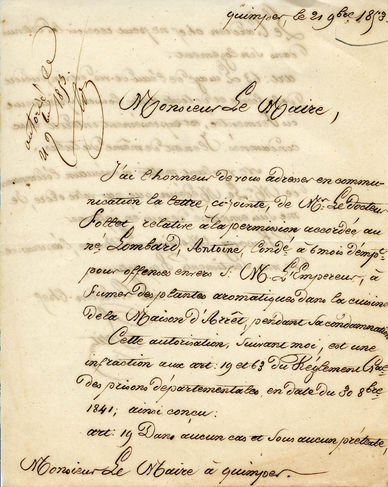 quimper le 21 9bre 1853
Monsieur Le Maire,
J'ai l'honneur de vous adresser en commu-
nication la lettre, ci-jointe, de Mr. Le Docteur
Follet relative à la permission accordée au
né Lombard, Antoine, Condé à 6 mois d'empt
pour offences envers S. M. L'Empereur, à
fumer des plantes aromatiques dans la cuisine
de la Maison d'Arrêt, pendant sa condamnation
Cette autorisation, suivant moi, est une
infraction aux art: 19 et 63 du Réglement Gal
des prisons départementales, en date du 30 8bre
1841; ainsi conçu:
art: 19 Dans aucun cas et sous aucun prétexte,
Monsieur Le Maire à quimper.